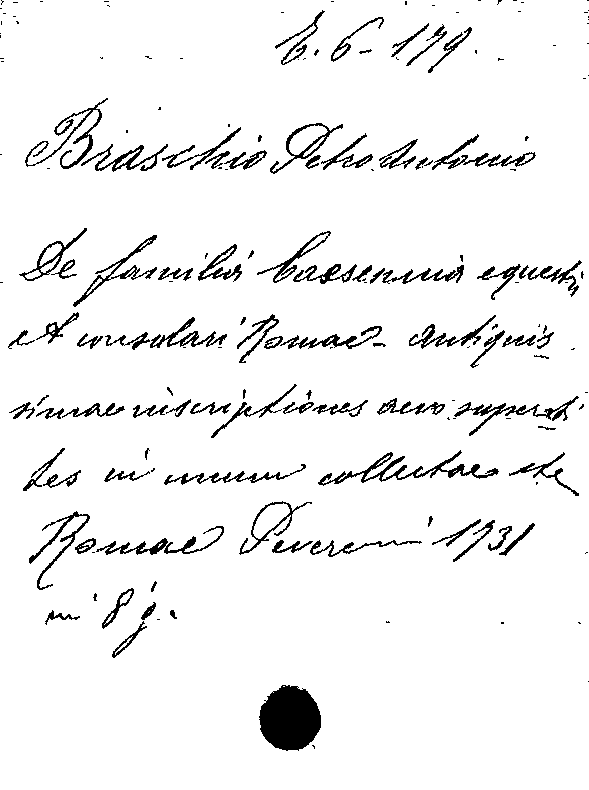 E. 6 - 179.
Braschio Petro Antonio
De familiâ Caesenniâ equestri
et consolari Romae - antiquis
simae inscriptiones aevo supersti
tes in unum collectae etc
Romae Peveroni 1731
in 8 g.